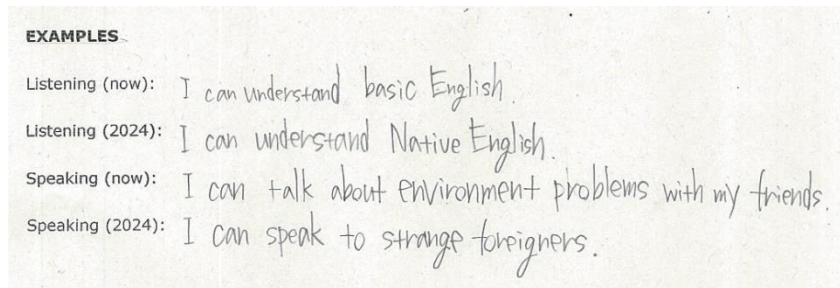 EXAMPLES
Listening (now): I can understand basic English.
Listening (2024): I can understand Native English.
Speaking (now): I can talk about environment problems with my friends.
Speaking (2024): I can speak to strange foreigners.